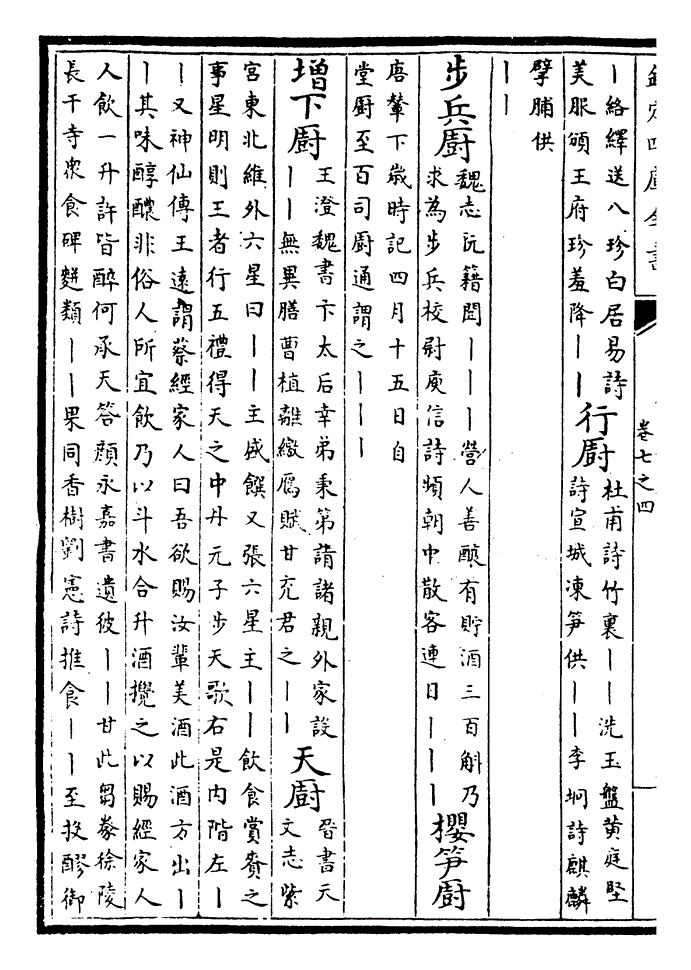 欽定四庫全書
卷七之四
丨絡繹送八珍白居易詩
美服頒王府珍羞降丨丨
行厨
杜甫詩竹裏丨丨洗玉盤黄庭堅
詩宣城凍笋供丨丨李坰詩麒麟
擘脯供
丨丨
步兵厨
魏志阮籍聞丨丨丨營人善釀有貯酒三百斛乃
求為步兵校尉庾信詩頻朝中散客連日丨丨丨
櫻笋厨
唐輦下嵗時記四月十五日自
堂厨至百司厨通謂之丨丨丨
増下厨
王澄魏書卞太后幸弟秉第請諸親外家設
丨丨無異膳曹植離繳鴈賦甘充君之丨丨
天厨
晉書天
文志紫
宮東北維外六星曰丨丨主盛饌又張六星主丨丨飲食賞賚之
事星明則王者行五禮得天之中丹元子步天歌右是内階左丨
丨又神仙傳王遠謂蔡經家人曰吾欲賜汝輩美酒此酒方出丨
丨其味醇醲非俗人所宜飲乃以斗水合升酒攪之以賜經家人
人飲一升許皆醉何承天答顔永嘉書遺彼丨丨甘此芻豢徐陵
長干寺衆食碑麪類丨丨果同香樹劉憲詩推食丨丨至投醪御